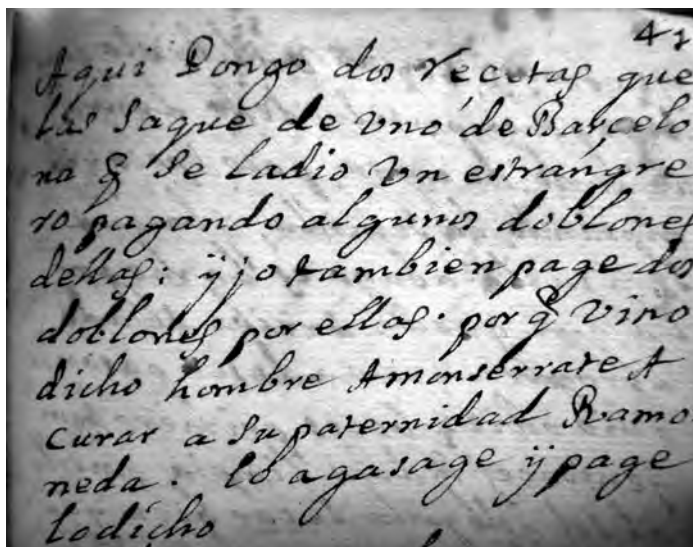 42
Aqui Pongo dos recetas que
las saque de vno de Barçelo
na q̃ se ladio vn estrangre
ro pagando algunos doblones
dellas: ÿ jo tambien page dos
doblones por ellas. por q̃ vino
dicho hombre A monserrate A
curar a su paternidad Ramo
neda. lo agasage ÿ page
lo dicho